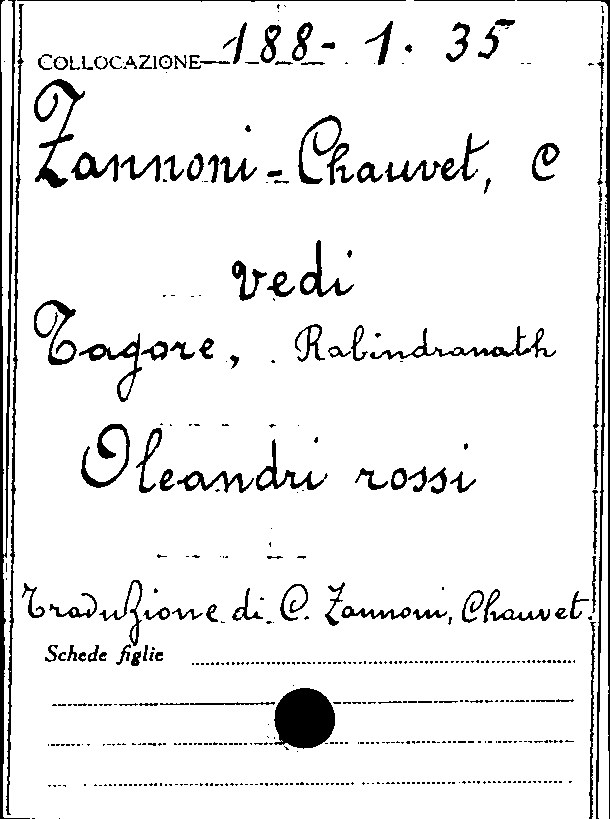 COLLOCAZIONE 188-1.35
Zannoni-Chauvet, C
vedi
Tagore, Rabindranath
Oleandri rossi
Traduzione di C. Zannoni, Chauvet.
Schede figlie